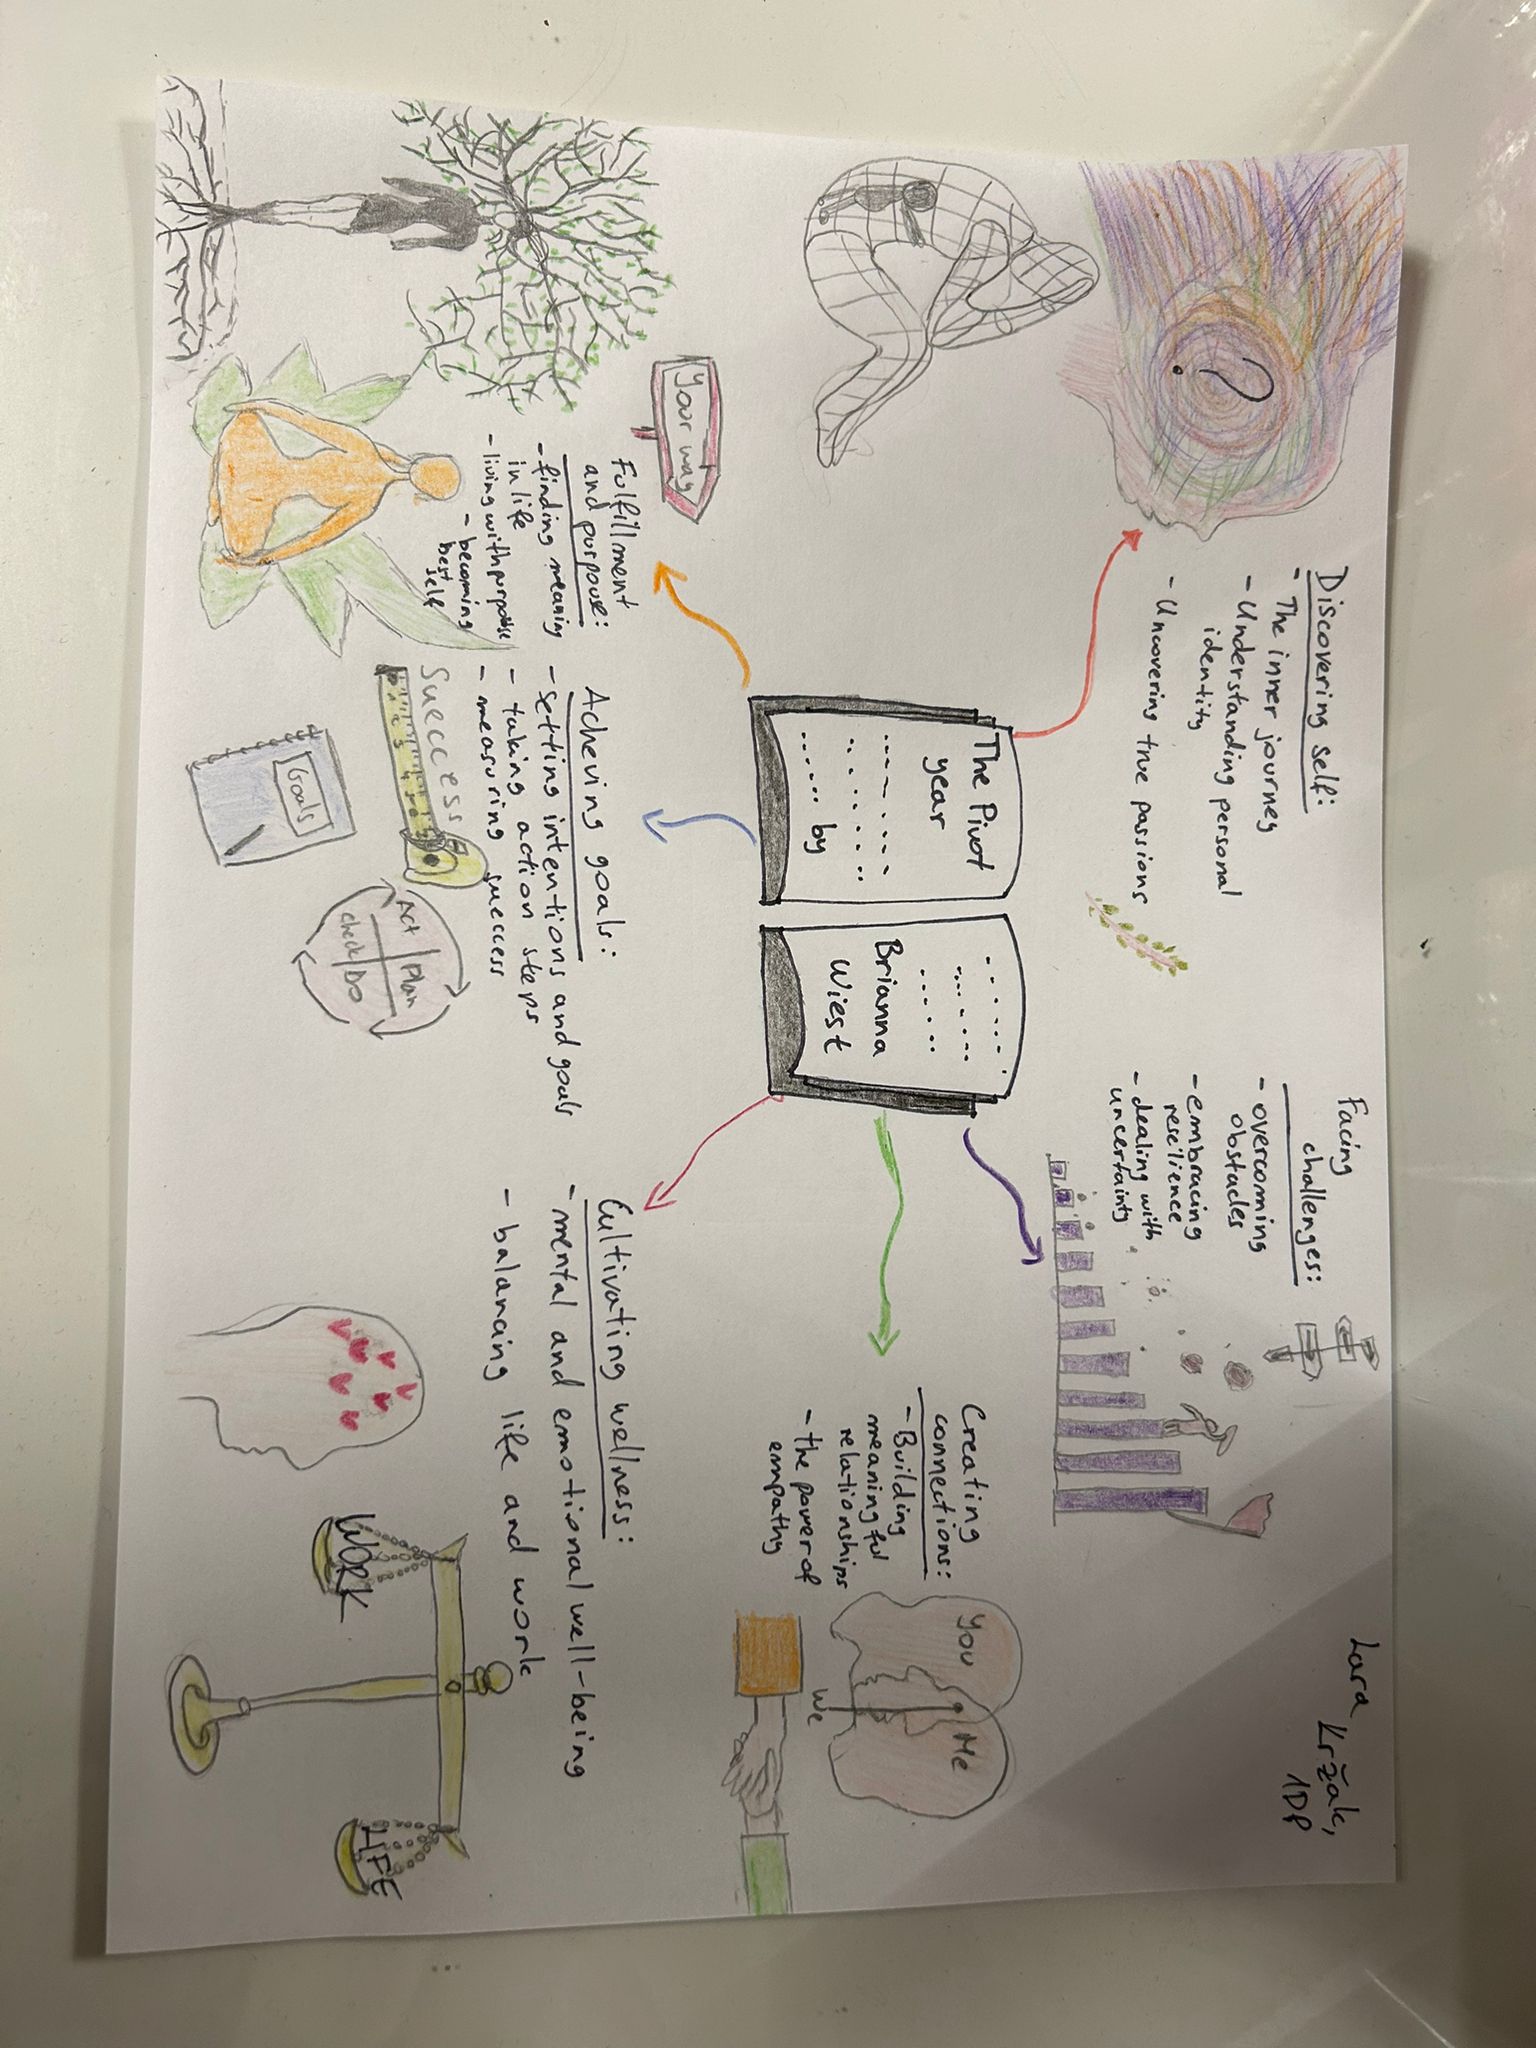 Lara
Kržak,
1DP
Discovering self:
- The inner journey
- Understanding personal
identity
- Uncovering true passions
?
Facing
challenges:
- overcoming
obstacles
- embracing
resilience
- dealing with
uncertainty
The Pivot
year
by
Brianna
Wiest
Creating
connections:
- Building
meaningful
relationships
- the power of
empathy
You
Me
We
Your way
Fulfillment
and purpouse:
- finding meaning
in life
- living with purpouse
- becoming
best
self
Acheving goals:
- setting intentions and goals
- taking action steps
- measuring success
Success
Act
Plan
Check
Do
Goals
Cultivating wellness:
- mental and emotional well-being
- balancing life and work
WORK
LIFE